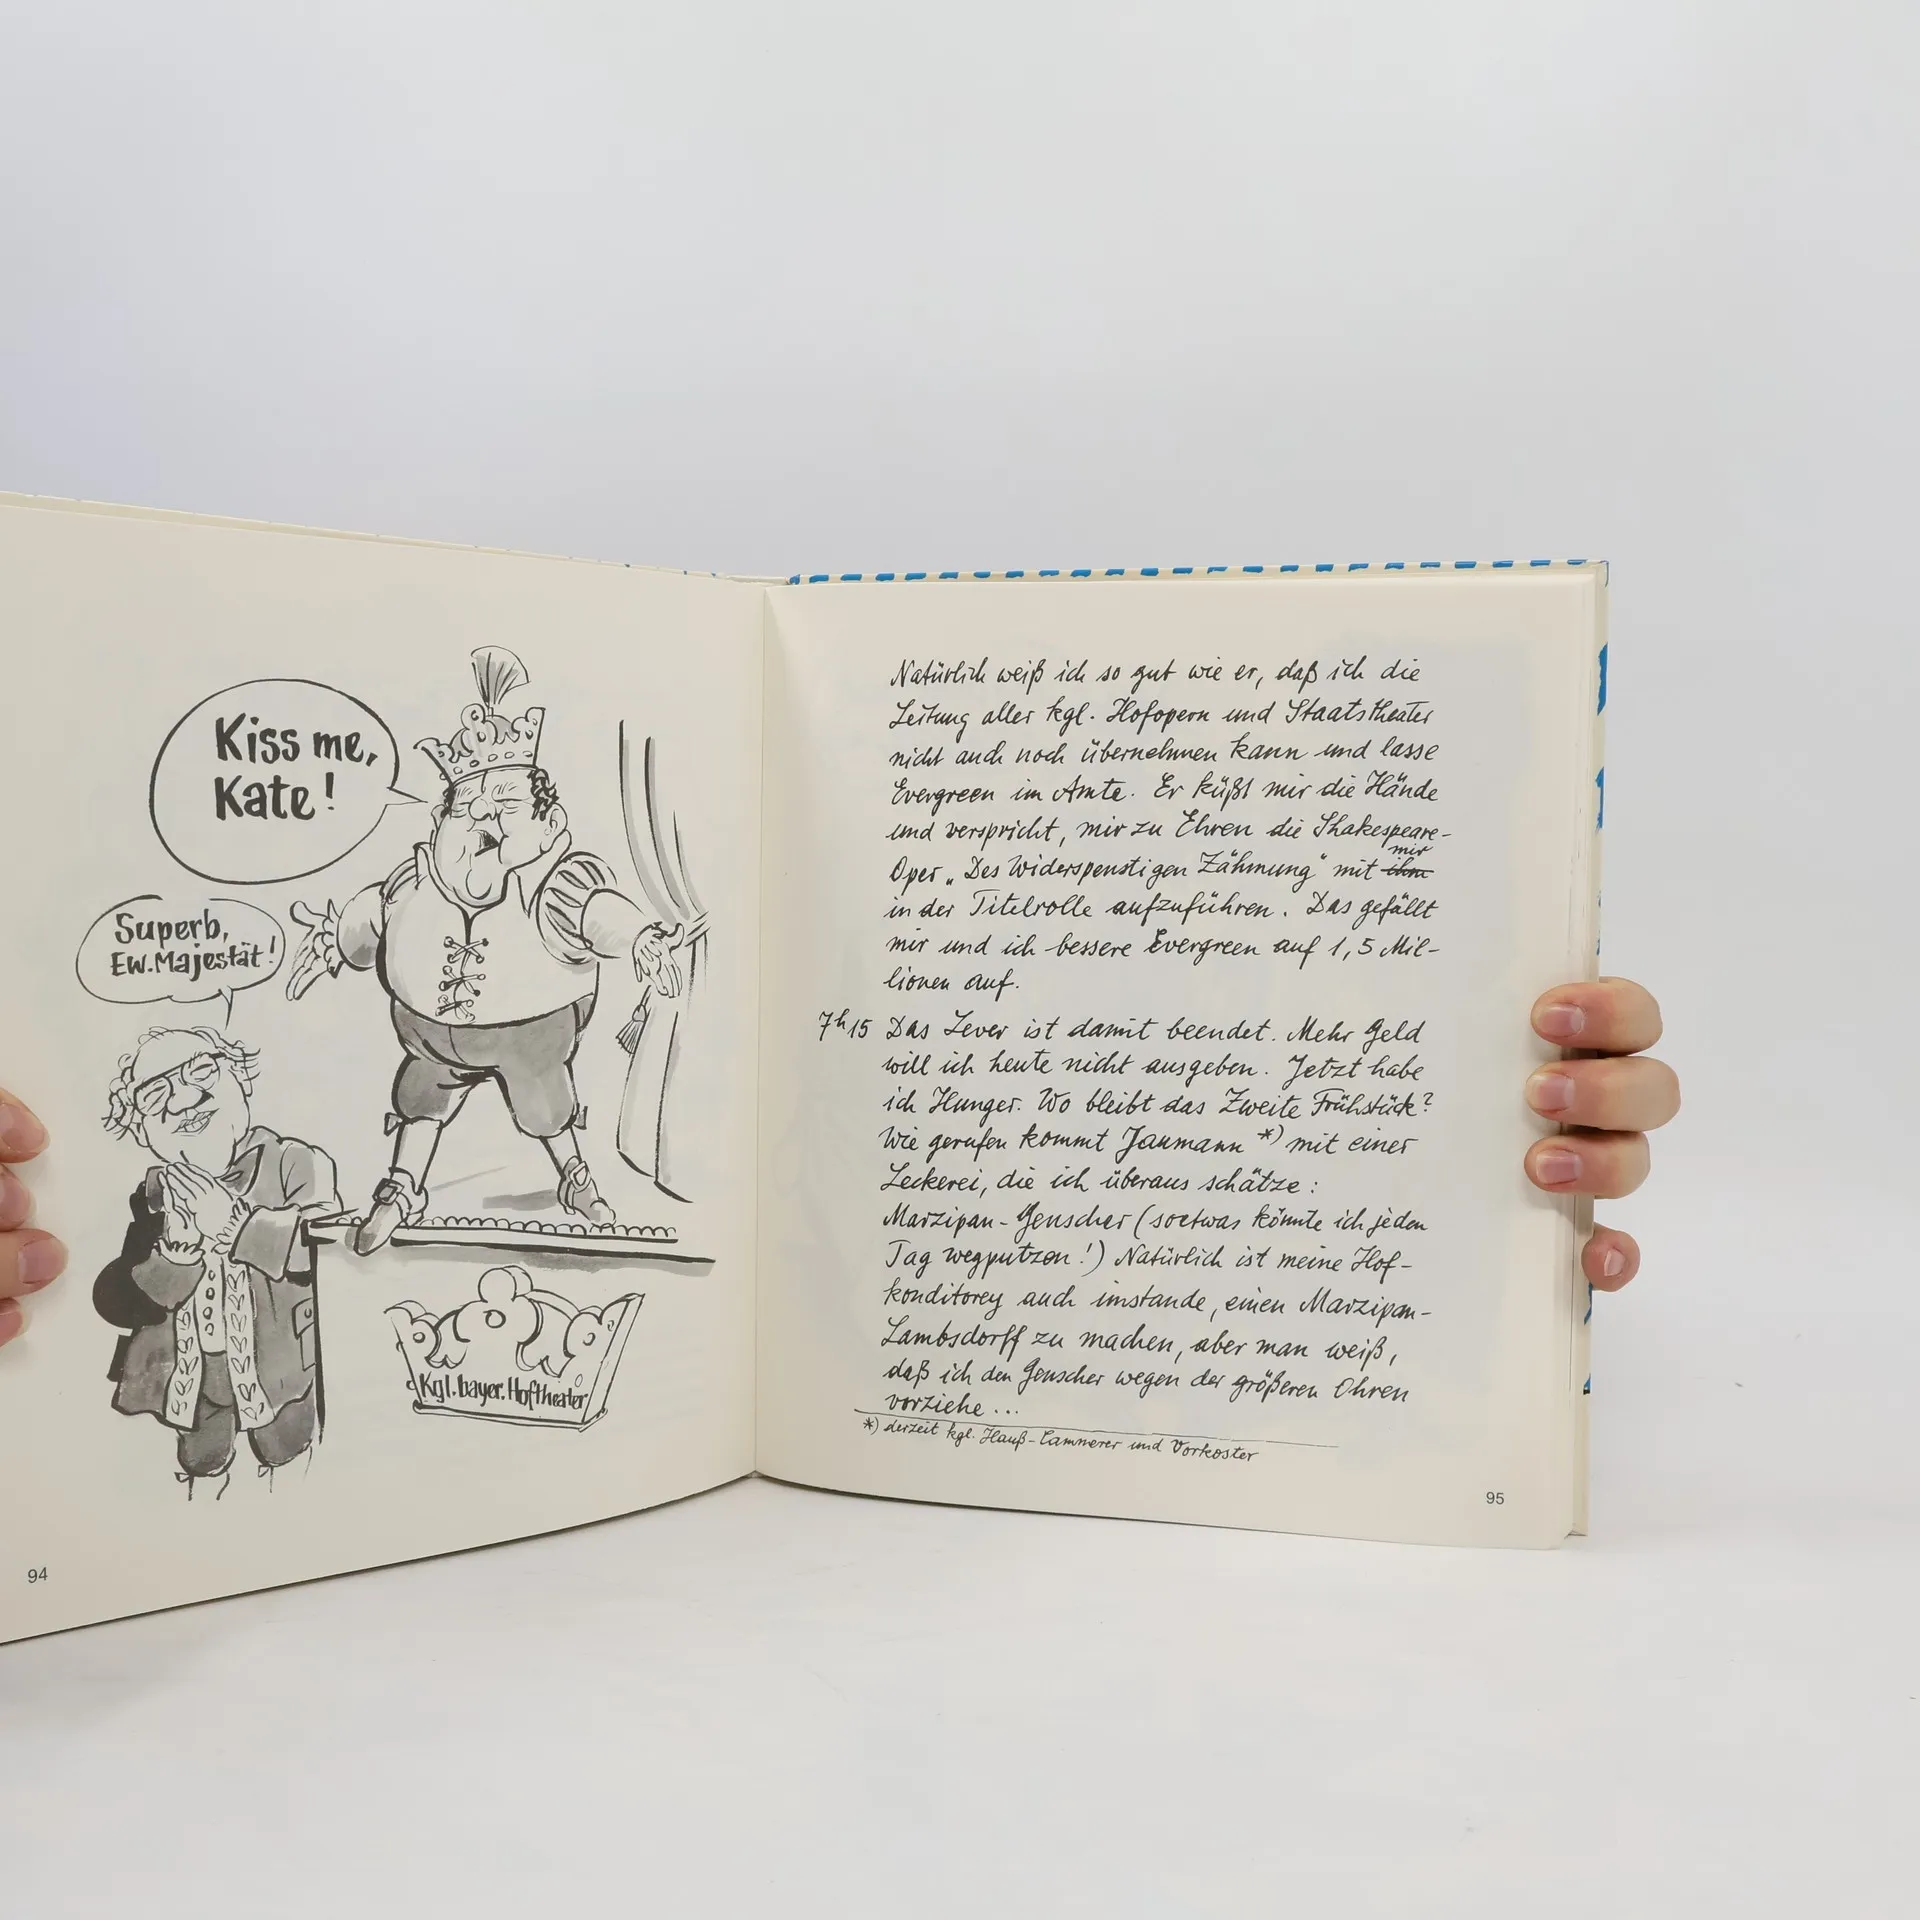 Kiss me,
Kate!
Superb,
Ew. Majestät!
Kgl. bayer. Hoftheater
94
Natürlich weiß ich so gut wie er, daß ich die
Leitung aller kgl. Hofopern und Staatstheater
nicht auch noch übernehmen kann und lasse
Evergreen im Amte. Er küßt mir die Hände
und verspricht, mir zu Ehren die Shakespeare-
mir
Oper „Des Widerspenstigen Zähmung" mit ihm
in der Titelrolle aufzuführen. Das gefällt
mir und ich bessere Evergreen auf 1,5 Mil-
lionen auf.
7h15 Das Lever ist damit beendet. Mehr Geld
will ich heute nicht ausgeben. Jetzt habe
ich Hunger. Wo bleibt das Zweite Frühstück?
Wie gerufen kommt Jaumann *) mit einer
Leckerei, die ich überaus schätze:
Marzipan-Genscher (soetwas könnte ich jeden
Tag wegputzen!) Natürlich ist meine Hof-
konditorey auch imstande, einen Marzipan-
Lambsdorff zu machen, aber man weiß,
daß ich den Genscher wegen der größeren Ohren
vorziehe...
*) derzeit kgl. Hauß-Cammerer und Vorkoster
95